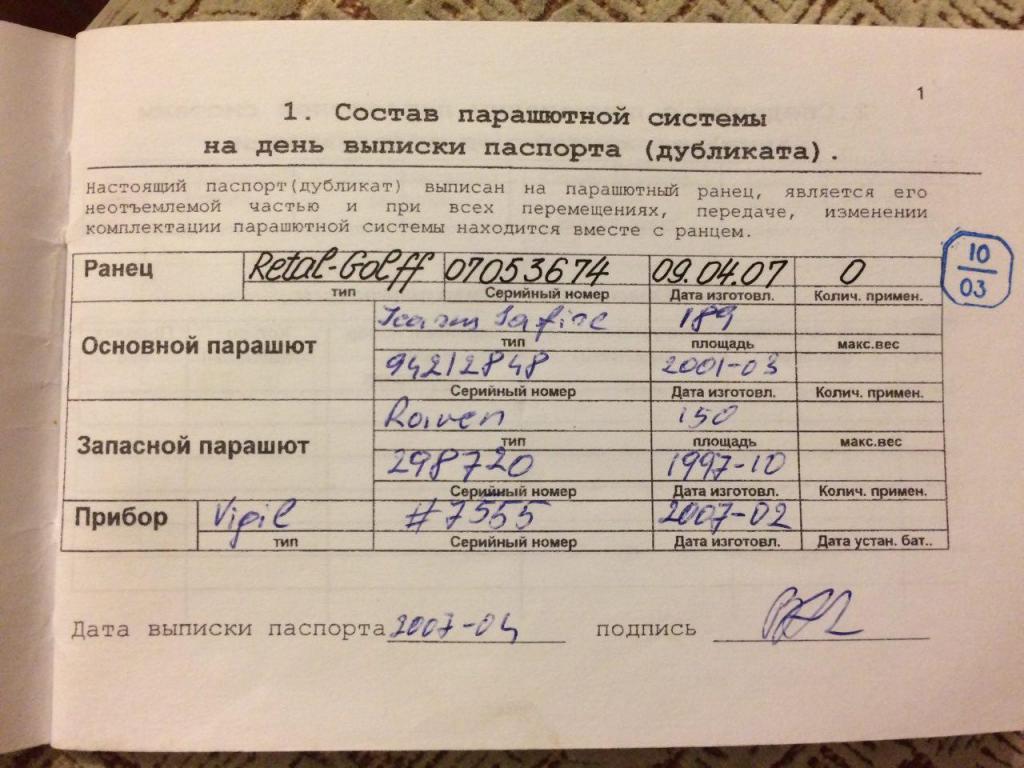 1
1. Состав парашютной системы
на день выписки паспорта (дубликата).
Настоящий паспорт(дубликат) выписан на парашютный ранец, является его
неотъемлемой частью и при всех перемещениях, передаче, изменении
комплектации парашютной системы находится вместе с ранцем.
Ранец Retal-Golff 07053674 09.04.07 0
тип Серийный номер Дата изготовл. Колич. примен.
10
03
Основной парашют
Icarus Safire 189
тип площадь макс.вес
94212848 2001-03
Серийный номер Дата изготовл. Колич. примен.
Запасной парашют
Raven 150
тип площадь макс.вес
298720 1997-10
Серийный номер Дата изготовл. Колич. примен.
Прибор Vigil #7555 2007-02
тип Серийный номер Дата изготовл. Дата устан. бат..
Дата выписки паспорта 2007-04 подпись